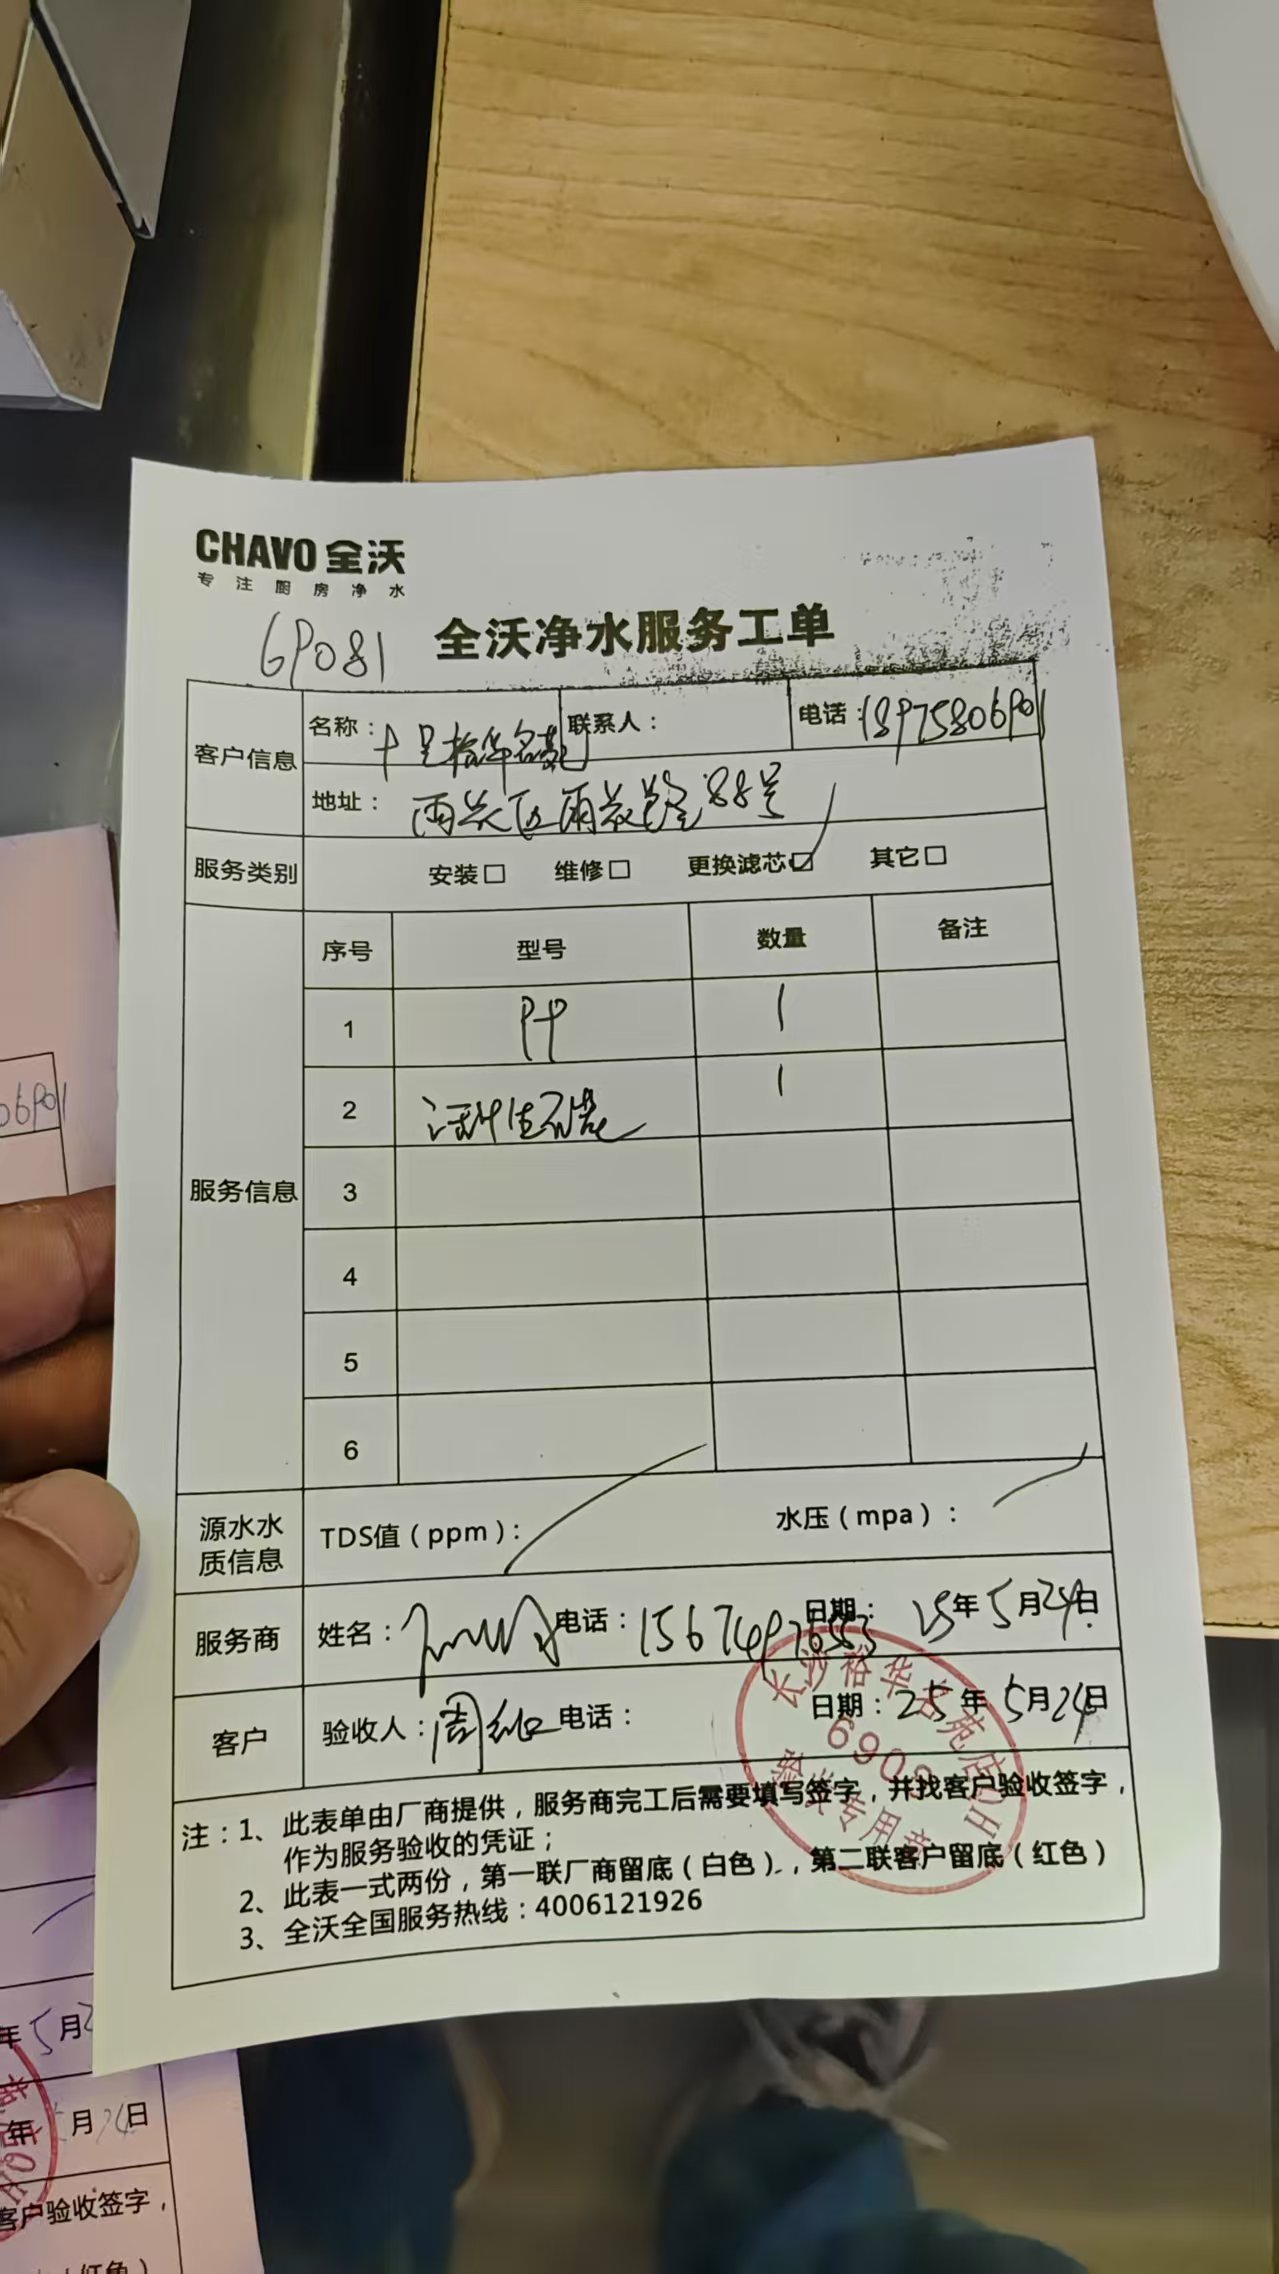 CHAVO 全沃
专注厨房净水
69081
全沃净水服务工单
客户信息
名称：裕华名苑
联系人：
电话：18975806901
地址：雨花区雨花 88号
服务类别
安装□ 维修□ 更换滤芯☑ 其它□
服务信息
序号 型号 数量 备注
1 PP 1
2 1
3
4
5
6
源水水质信息
TDS值（ppm）：
水压（mpa）：
服务商
姓名：
电话：
日期：25年5月24日
客户
验收人：周
电话：
日期：25年5月24日
长沙裕华名苑店
专用章
注：1、此表单由厂商提供，服务商完工后需要填写签字，并找客户验收签字，
作为服务验收的凭证；
2、此表一式两份，第一联厂商留底（白色），第二联客户留底（红色）
3、全沃全国服务热线：4006121926
06901
年5月2
年 月24日
客户验收签字，